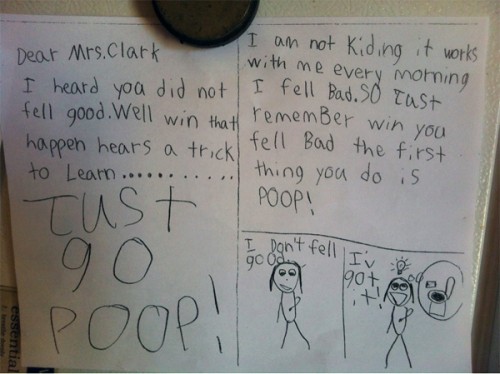 Dear Mrs.Clark
I heard you did not
fell good.Well win that
happen hears a trick
to Learn............
JUST
GO
POOP!
I am not Kiding it works
with me every morning
I fell Bad.SO JUST
rememBer win you
fell Bad the first
thing you do is
POOP!
I Don't fell
good.
I'v
got
it!
essential